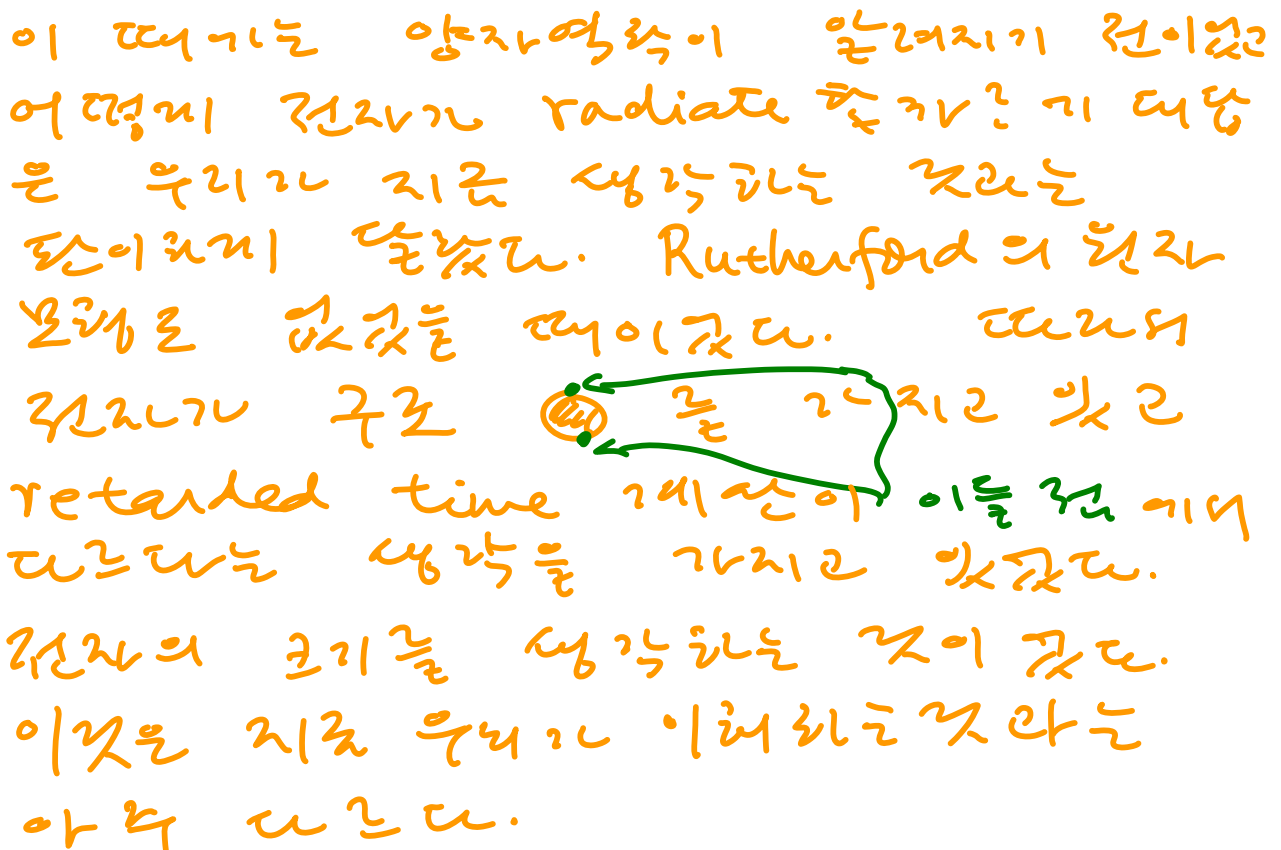 이 때기는 양자역학이 알려지기 전이였고
어떻게 전자가 radiate 할까르기 대답
은 우리가 지금 생각하는 것과는
판이하게 달랐다. Rutherford의 원자
모형도 없었을 때이였다. 따라서
전자가 구조 를 가지고 있고
retarded time 계산이 이들 점에서
다르다는 생각을 가지고 있었다.
전자의 크기를 생각하는 것이였다.
이것은 지금 우리가 이해하는 것과는
아주 다르다.